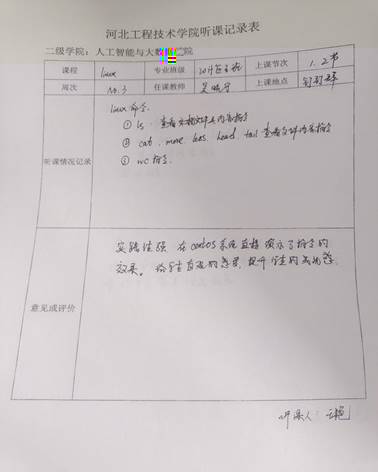 河北工程技术学院听课记录表
二级学院：人工智能与大数据学院
课程 linux 专业班级 上课节次 1.2节
周次 No.3 任课教师 吴 上课地点
听课情况记录
linux 命令.
① ls 查看文件
② cat. more less. head. tail 查看文件内容指令
③ wc 指令.
意见或评价
实践性强 在centos系统直接演示了指令的
效果。给学生直观的感受,提升学生的
听课人：